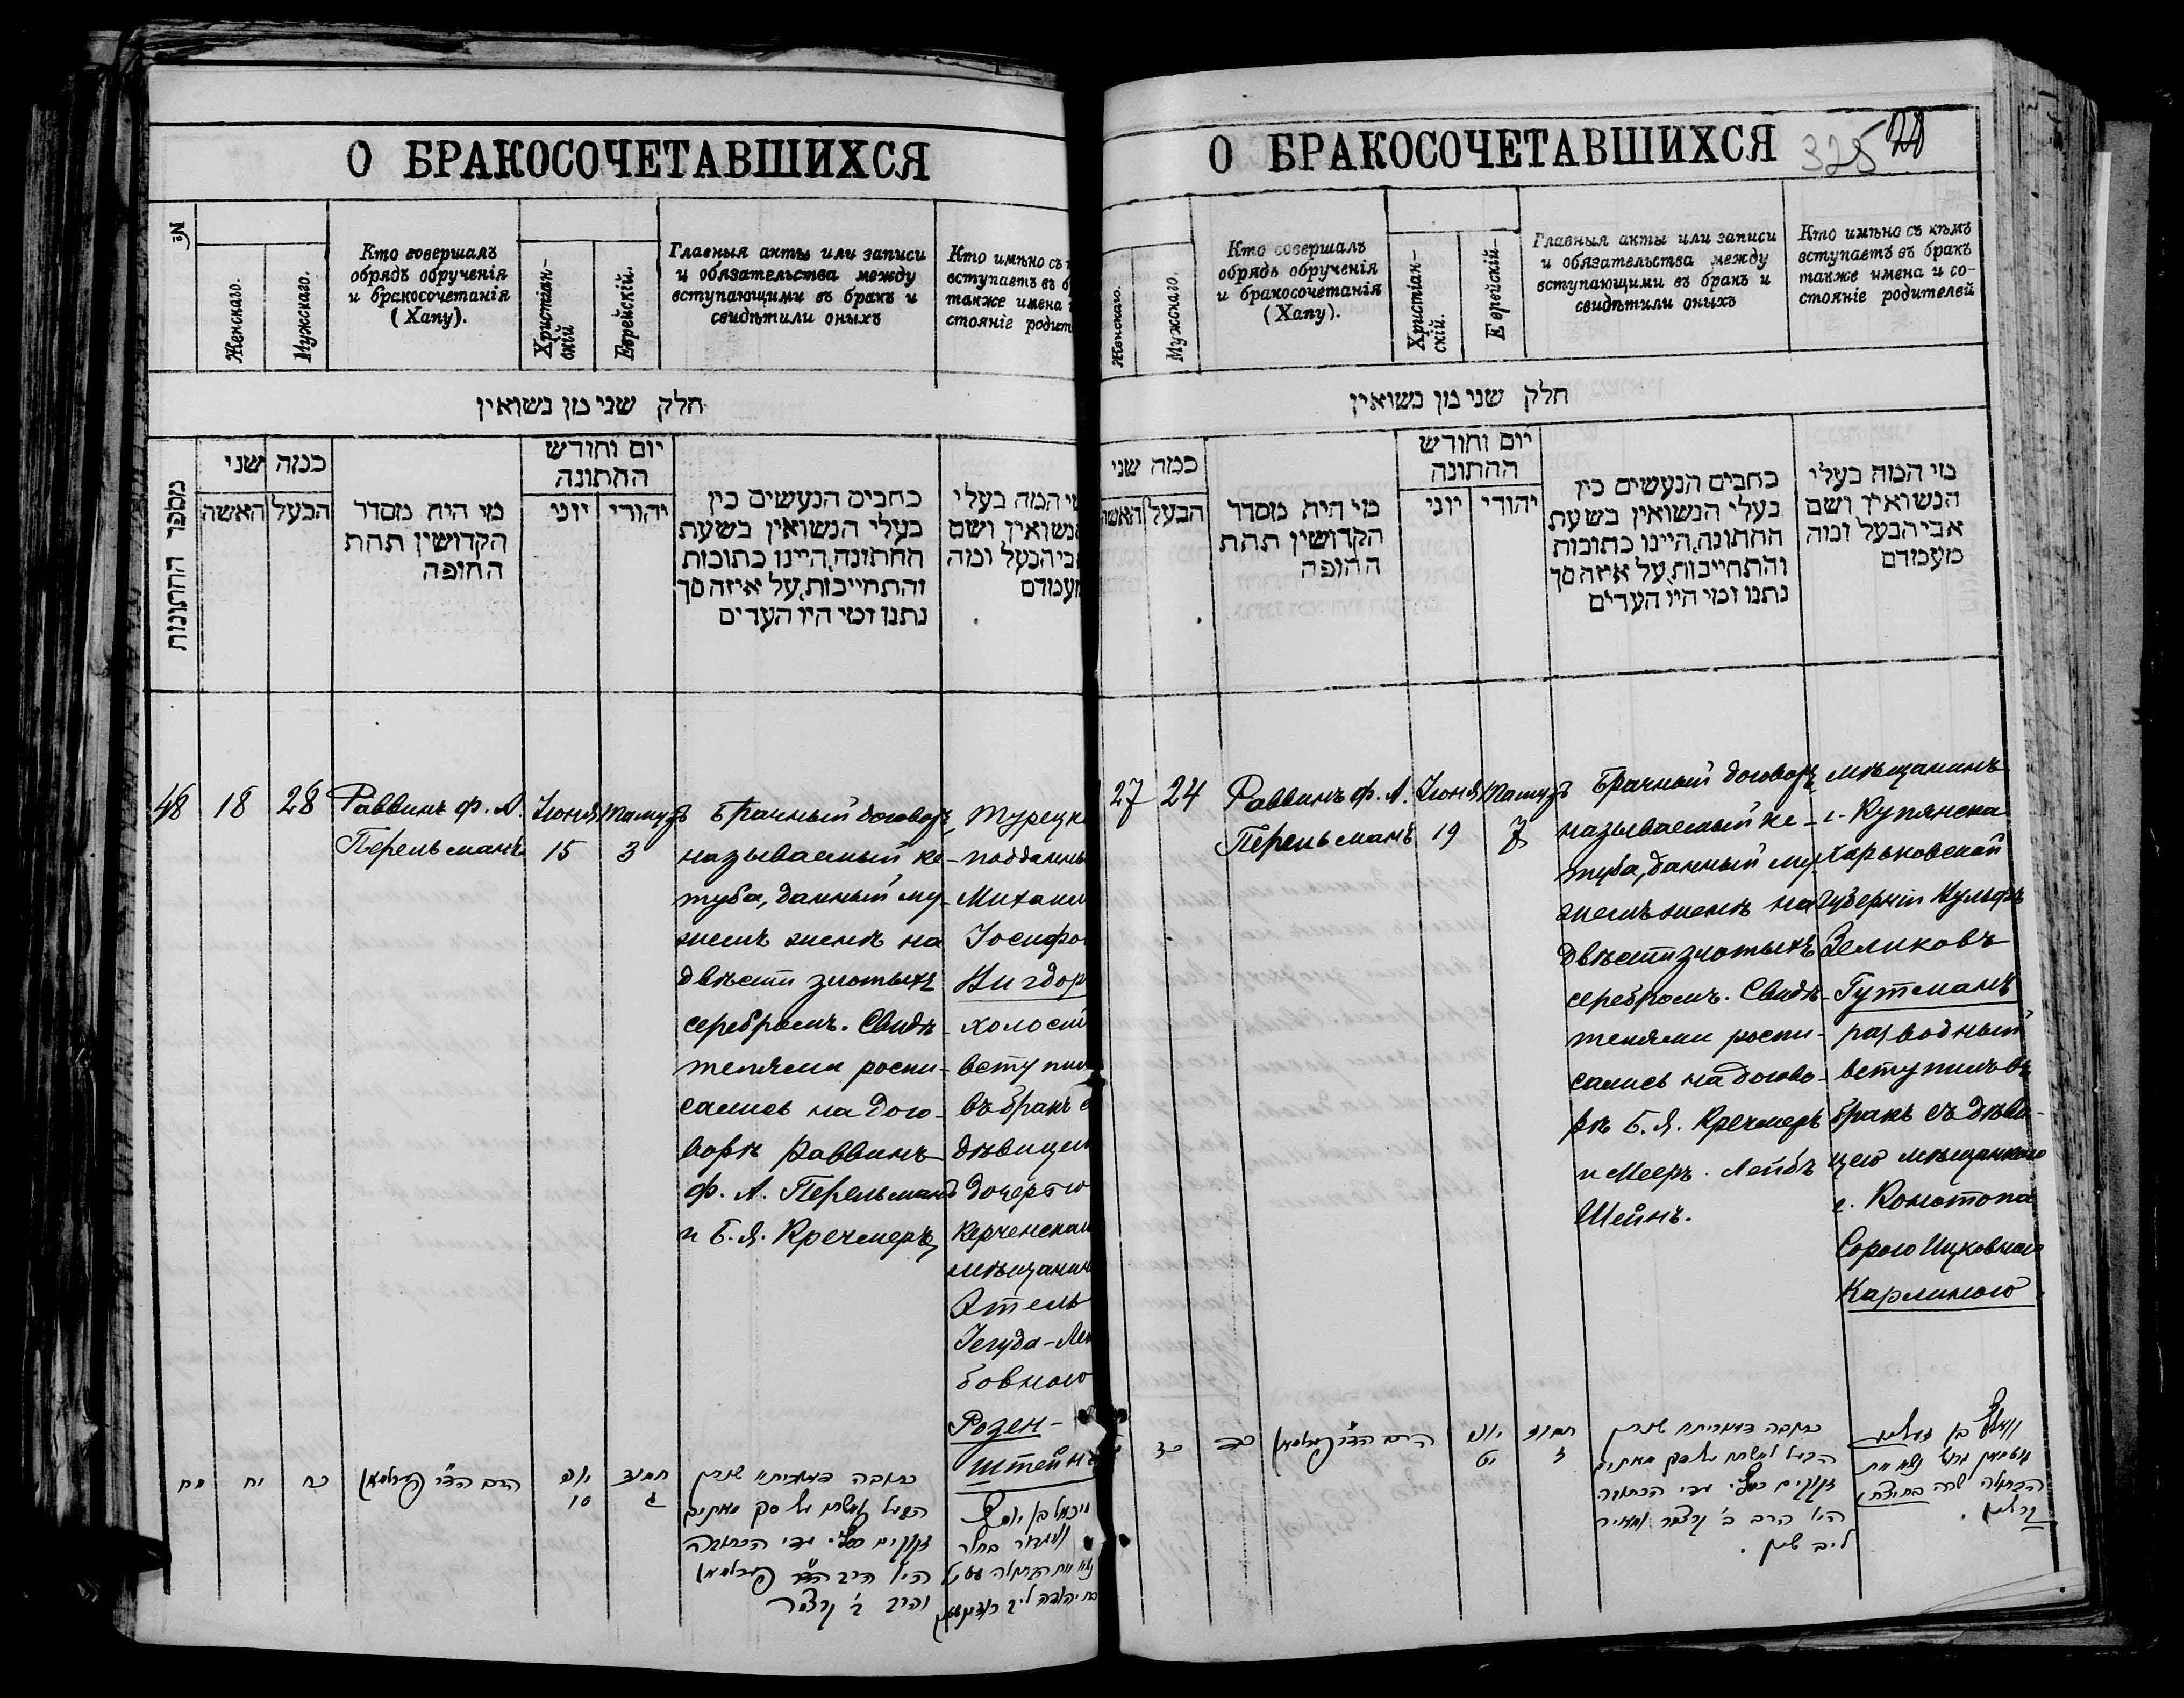 О БРАКОСОЧЕТАВШИХСЯ
№
Женскаго.
Мужскаго.
Кто совершалъ
обрядъ обрученія
и бракосочетанія
(Хапу).
Христіан-
скій
Еврейскій.
Главныя акты или записи
и обязательства между
вступающими въ бракъ и
свидѣтили оныхъ
Кто имѣно съ
вступаетъ въ б
также имена
стояніе родит
חלק שני מן נשואין
מספר החתונות
כמה שני
האשה
הבעל
מי היה מסדר
הקדושין תחת
החופה
יום וחודש
החתונה
יוני
יהודי
כתבים הנעשים בין
בעלי הנשואין בשעת
החתונה, היינו כתובות
והתחייבות, על איזה סך
נתנו ומי היו העדים
מי המה בעלי
הנשואין ושם
אבי הבעל ומה
מעמדם
48
18
28
Раввинъ Ф. А.
Перельманъ
Іюня
15
Тамузъ
3
Брачный договоръ,
называемый ке-
туба, данный му-
жемъ женѣ на
двѣсти злотыхъ
серебромъ. Свидѣ-
телями роспи-
сались на дого-
ворѣ Раввинъ
Ф. А. Перельманъ
и Б. Я. Кречмеръ
Турецк
подданны
Михаил
Іосифо
Вигдор
холост
вступил
въ бракъ с
дѣвицею
дочерью
Керченскаго
мѣщанин
Этель
Іегуда-Лей
бовною
Розен-
штейнъ
מח
יח
כח
הרב הד״ר פערלמאן
יוני
15
תמוז
ג
כתובה דאורייתא שנתן
הבעל לאשתו על סך מאתים
זקוקים כסף. עדי הכתובה
היו הרב הד״ר פערלמאן
והרב ב׳ קרצמר
מיכאל בן יוסף
וויגדאר בחור
בת יהודה ליב ראזענשטיין
О БРАКОСОЧЕТАВШИХСЯ
325
Женскаго.
Мужскаго.
Кто совершалъ
обрядъ обрученія
и бракосочетанія
(Хапу).
Христіан-
скій.
Е врейскій-
Главныя акты или записи
и обязательства между
вступающими въ бракъ и
свидѣтили оныхъ
Кто имѣно съ кѣмъ
вступаетъ въ бракъ
также имена и со-
стояніе родителей
חלק שני מן נשואין
כמה שני
האשה
הבעל
מי היה מסדר
הקדושין תחת
החופה
יום וחודש
החתונה
יוני
יהודי
כתבים הנעשים בין
בעלי הנשואין בשעת
החתונה, היינו כתובות
והתחייבות, על איזה סך
נתנו ומי היו העדים
מי המה בעלי
הנשואין ושם
אבי הבעל ומה
מעמדם
27
24
Раввинъ Ф. А.
Перельманъ
Іюня
19
Тамузъ
7
Брачный договоръ,
называемый ке-
туба, данный му-
жемъ женѣ на
двѣсти злотыхъ
серебромъ. Свидѣ-
телями роспи-
сались на догово-
рѣ Б. Я. Кречмеръ
и Меер. Лейбъ
Шейнъ.
мѣщанинъ
г. Купянска
Харьковской
губерніи Вульфъ
Зеликовъ
Гутманъ
разводный
вступилъ въ
бракъ съ дѣви-
цею мѣщанкою
г. Конотопа
Сорою Ицковною
Карлиною
הרב הד״ר פערלמאן
יוני
יט
תמוז
ז
כתובה דאורייתא שנתן
הבעל לאשתו על סך מאתים
זקוקים כסף. עדי הכתובה
היו הרב ב׳ קרצמר ומאיר
ליב שיין.
וואלף בן זעליג
גוטמאן גרוש
הבתולה שרה בת יצחק
קרלין.